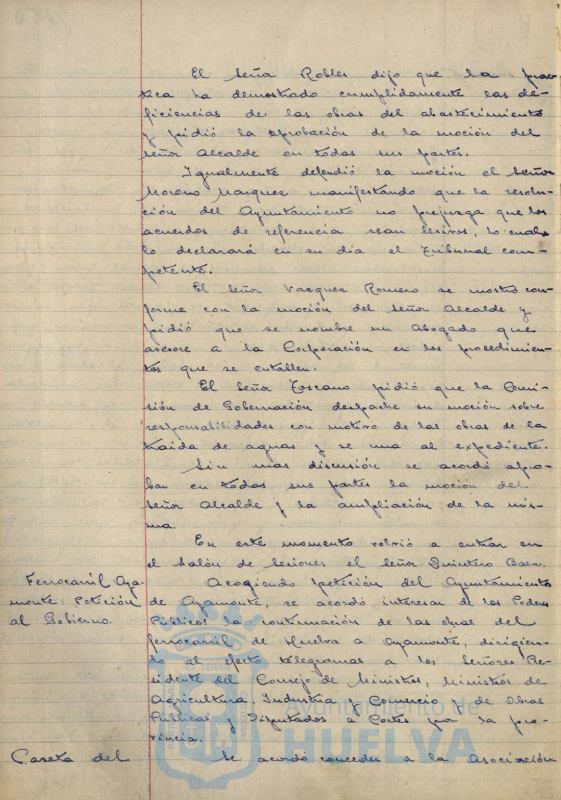 El Señor Robles dijo que la prac-
tica ha demostrado cumplidamente las de-
ficiencias de las obras del abastecimiento
y pidió la aprobación de la moción del
Señor Alcalde en todas sus partes.
Igualmente defendió la moción el Señor
Moreno Marquez manifestando que la resolu-
ción del Ayuntamiento no prejuzga que los
acuerdos de referencia sean lesivos, lo cual
lo declarará en su dia el Tribunal com-
petente.
El Señor Vazquez Romero se mostró con-
forme con la moción del Señor Alcalde y
pidió que se nombre un Abogado que
asesore a la Corporación en los procedimien-
tos que se entablen.
El Señor Toscano pidió que la Comi-
sión de Gobernación despache su moción sobre
responsabilidades con motivo de las obras de la
traida de aguas y se una al expediente.
Sin mas discusión se acordó apro-
bar en todas sus partes la moción del
Señor Alcalde y la ampliación de la mis-
ma.
En este momento volvió a entrar en
el Salón de Sesiones el Señor Quintero Baez.
Ferrocarril Aya-
monte: Petición
al Gobierno.
Acogiendo petición del Ayuntamiento
de Ayamonte, se acordó interesar de los Poderes
Públicos la continuación de las obras del
ferrocarril de Huelva a Ayamonte, dirigien-
do al efecto telegramas a los Señores Pre-
sidente del Consejo de Ministros, Ministros de
Agricultura Industria y Comercio y de Obras
Públicas y Diputados a Cortes por la pro-
vincia.
Caseta del
Se acordó conceder a la Asociación
Ayuntamiento de
HUELVA